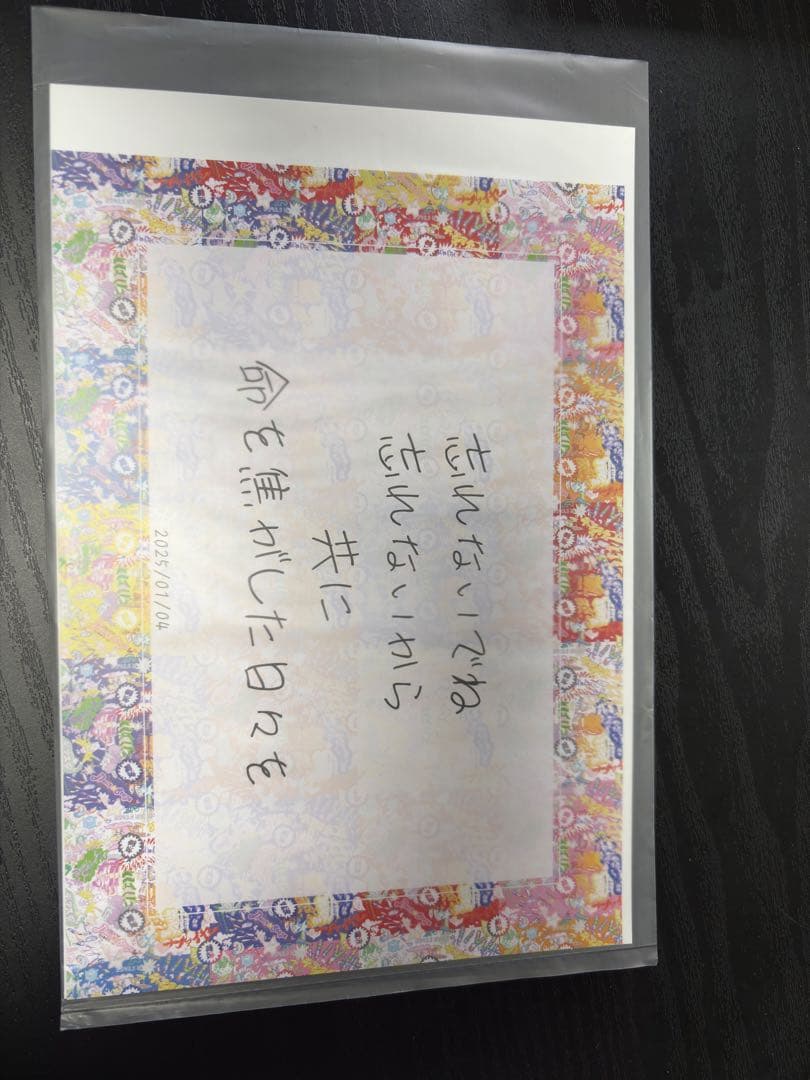 忘れないでね
忘れないから
共に
命を焦がした日々を
2025/01/04